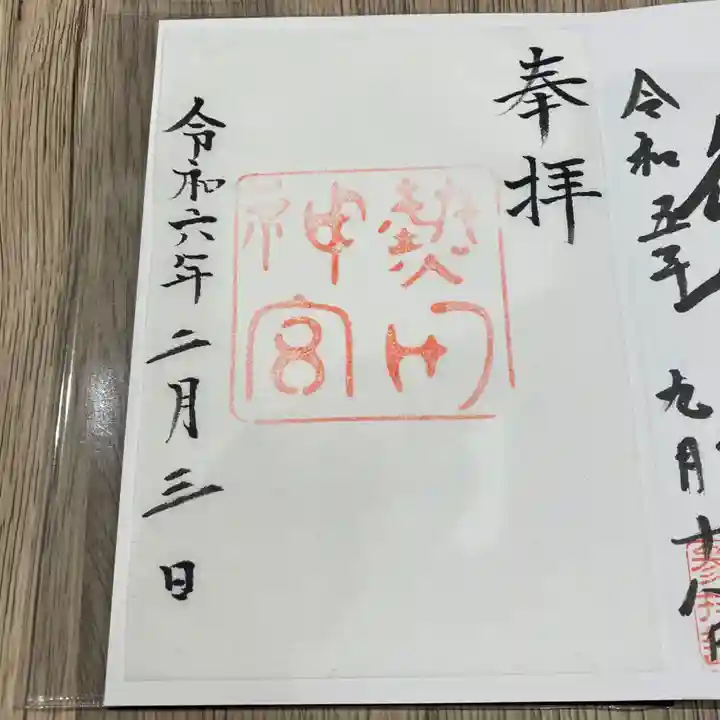 令和五年
九月十八日
奉拝
熱田
神宮
令和六年二月三日